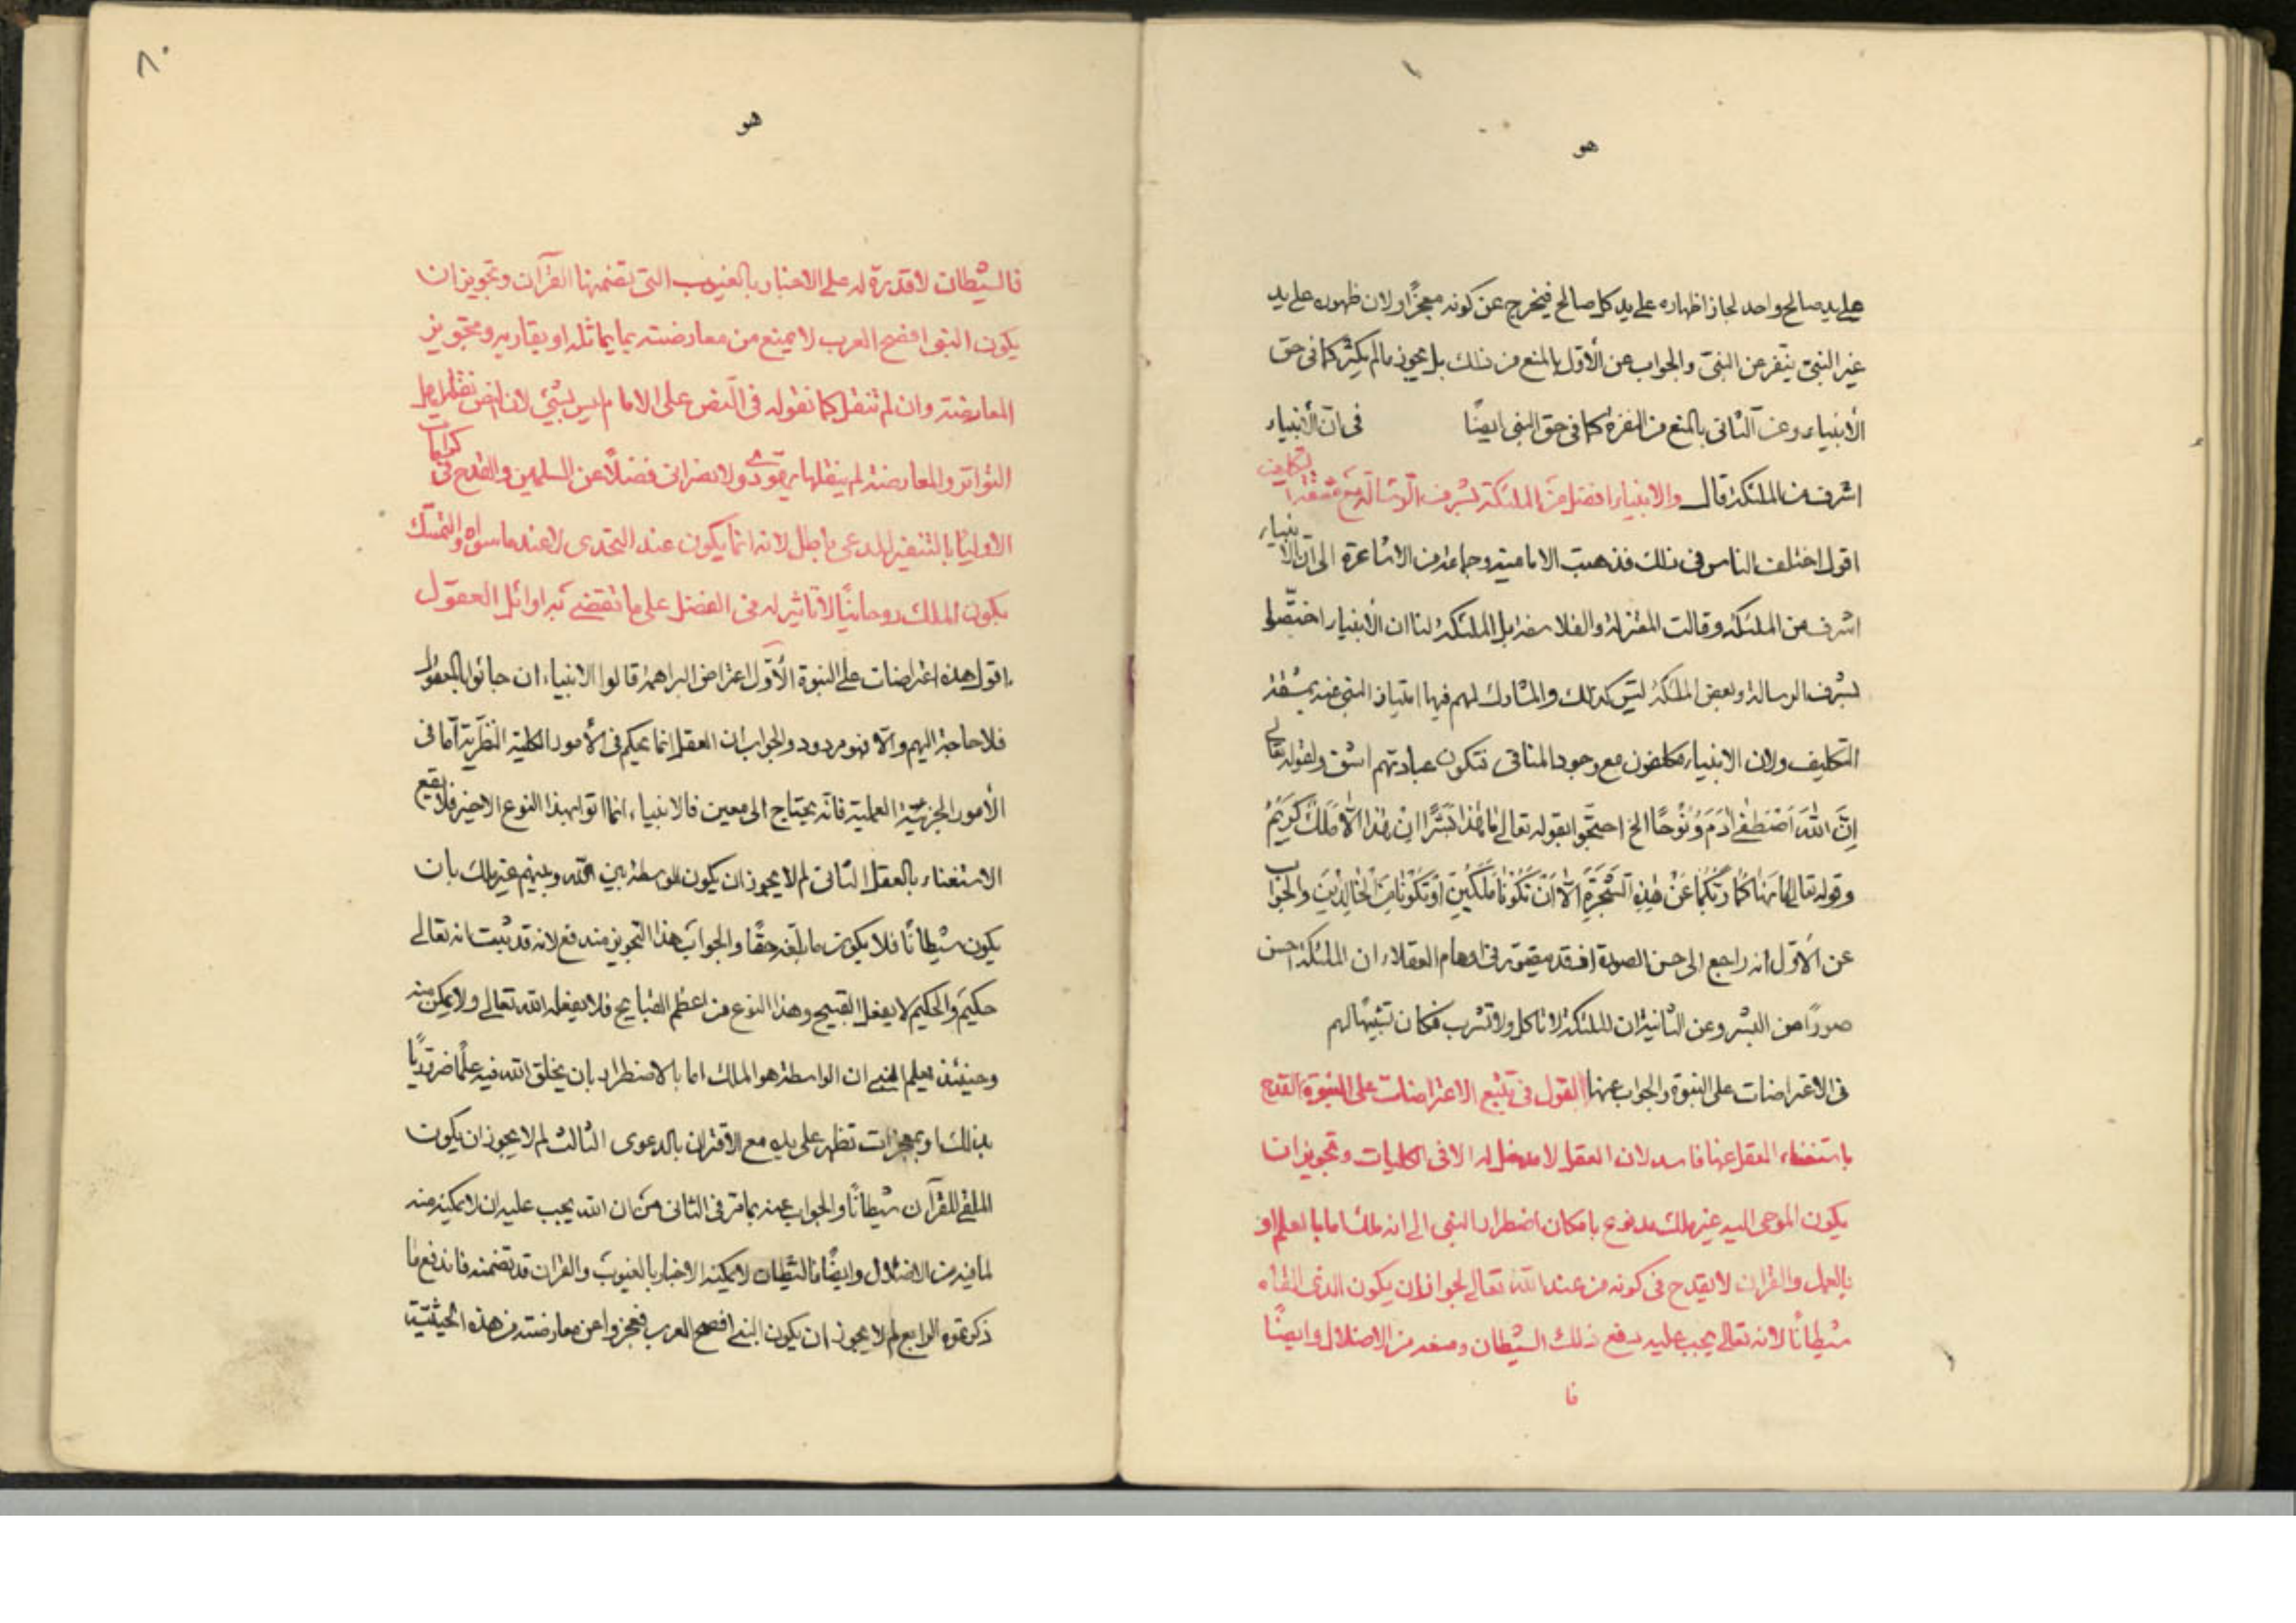 هو
على يد صالح واحد لجاز اظهاره على يد كل صالح فيخرج عن كونه معجزًا ولان ظهوره على يد
غير النبى ينفر عن النبى والجواب عن الأول بالمنع من ذلك بل يجوز مالم يكثر كما فى حق
الأنبياء وعن الثانى بالمنع من النفرة كما فى حق النبى ايضًا فى انّ الأنبياء
اشرف من الملئكة قال والانبياء افضل من الملئكة لشرف الرسالة مع مشقة التكليف
اقول اختلف الناس فى ذلك فذهبت الامامية وجماعة من الاشاعرة الى انّ الأنبياء
اشرف من الملئكة وقالت المعتزلة والفلاسفة بل الملئكة لنا ان الأنبياء اختصّوا
بشرف الرسالة وبعض الملئكة ليس كذلك والمشارك لهم فيها امتياز النبى عنه بمشقة
التكليف ولان الانبياء مكلفون مع وجود المنافى فتكون عبادتهم اشق ولقوله تعالى
اِنَّ اللهَ اصْطَفٰى اٰدَمَ وَنُوْحًا الخ احتجّوا بقوله تعالى مَا هٰذَا بَشَرًا اِنْ هٰذَا اِلّا مَلَكٌ كَرِيْمٌ
وقوله تعالى مَا نَهٰاكُمٰا رَبُّكُمٰا عَنْ هٰذِهِ الشَّجَرَةِ اِلّا اَنْ تَكُونٰا مَلَكَيْنِ اَوْ تَكُونٰا مِنَ الْخٰالِدِيْنَ والجواب
عن الأول انه راجع الى حسن الصورة اذ قد يتصور فى اوهام العقلاء ان الملئكة احسن
صورًا من البشر وعن الثانية ان الملئكة لا تاكل ولا تشرب فكان تشبيهًا لهم
فى الاعتراضات على النبوة والجواب عنها القول فى تتبع الاعتراضات على النبوة القدح
باستغناء العقل عنها فاسد لان العقل لا مدخل له الا فى الكليات وتجويز ان
يكون الموحى اليه غير ملك مدفوع بامكان اضطرار النبى الى انه ملك اما بالعلم او
بالعمل والقران لا يقدح فى كونه من عند الله تعالى لجواز ان يكون الذى القاه
شيطانًا لانه تعالى يجب عليه دفع ذلك الشيطان ومنعه من الاضلال وايضًا
فا
٨٠
هو
فالشيطان لا قدرة له على الاخبار بالغيوب التى تضمنها القرآن وتجويز ان
يكون النبى افصح العرب لا يمنع من معارضته بما يماثله او يقاربه وتجويز
المعارضة وان لم تنقل كما نقوله فى النص على الامام ليس بشئ لان النص نقله اهل
التواتر والمعارضة لم ينقلها يهودى ولا نصرانى فضلًا عن المسلمين والقدح فى كرامات
الاوليا بالتنفير المدعى باطل لانه انما يكون عند التحدى لا عند ما سواه والتمسّك
بكون الملك روحانيًّا لا تاثير له فى الفضل على ما تقتضى به اوائل العقول
اقول هذه اعتراضات على النبوة الأوّل اعتراض البراهمة قالوا الانبياء ان جائوا بالمعقول
فلا حاجة اليهم والا فهو مردود والجواب ان العقل انما يحكم فى الأمور الكلية النظرية امّا فى
الأمور الجزئية العملية فانّه يحتاج الى معين فالانبياء انما اتوا بهذا النوع الاخير فلا يقع
الاستغناء بالعقل الثانى لم لا يجوز ان يكون الواسطة بين الله وبينهم غير ملك بان
يكون شيطانًا فلا يكون ما بلّغه حقًا والجواب هذا التجويز مندفع لانه قد ثبت انه تعالى
حكيم والحكيم لا يفعل القبيح وهذا النوع من اعظم القبايح فلا يفعله الله تعالى ولا يمكن منه
وحينئذ يعلم النبى ان الواسطة هو الملك اما بالاضطرار بان يخلق الله فيه علمًا ضروريًّا
بذلك او بمعجزات تظهر على يده مع الاقتران بالدعوى الثالث لم لا يجوز ان يكون
الملقى للقرآن شيطانًا والجواب عنه بما مرّ فى الثانى من ان الله يجب عليه ان لا يمكنه منه
لما فيه من الاضلال وايضًا فالشيطان لا يمكنه الاخبار بالغيوب والقران قد تضمنه فاندفع ما
ذكرتموه الرابع لم لا يجوز ان يكون النبى افصح العرب فعجزوا عن معارضته من هذه الحيثيّة